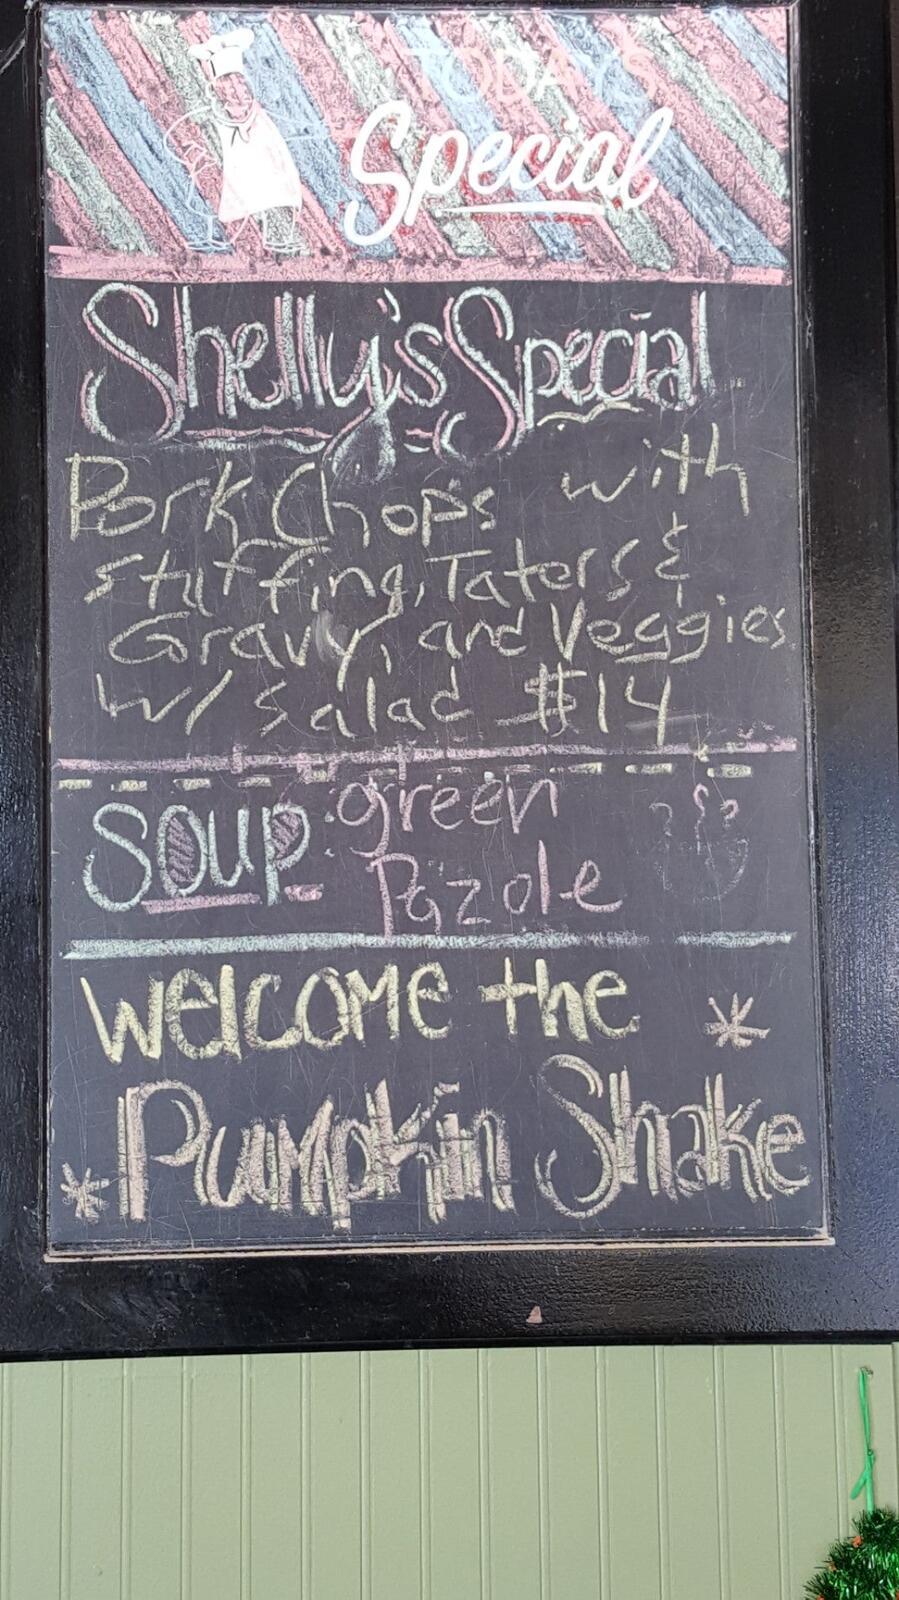 TODAY'S
Special
Shelly's Special
Pork Chops with
stuffing, Taters &
Gravy, and Veggies
w/ salad $14
Soup: green
Pozole
Welcome the
Pumpkin Shake